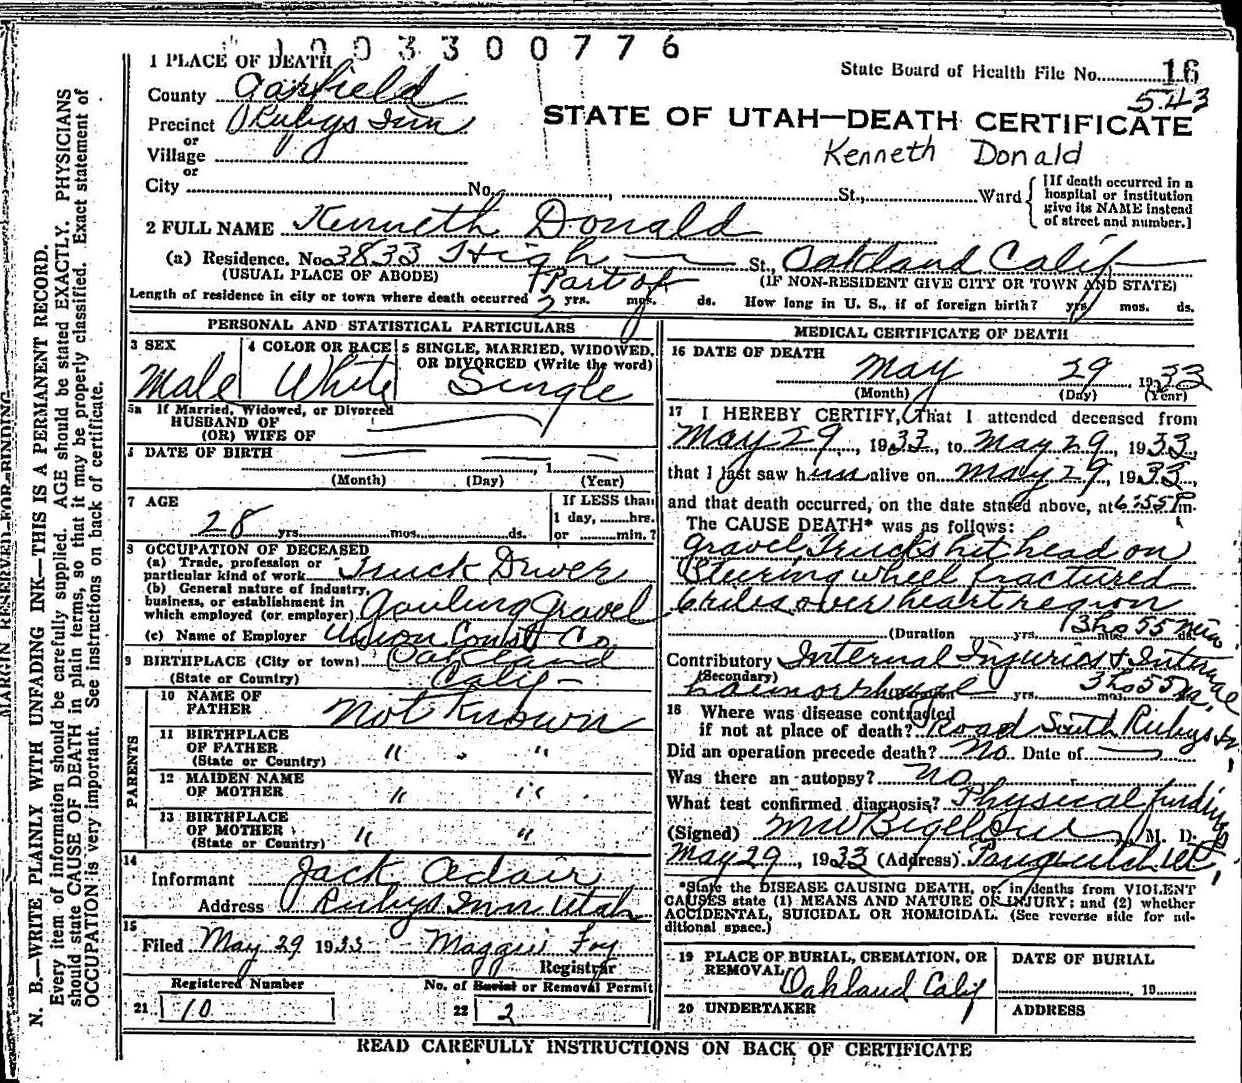 1003300776
1 PLACE OF DEATH
State Board of Health File No. 16
543
County Garfield
Precinct Rubys Inn
or
Village
or
STATE OF UTAH—DEATH CERTIFICATE
Kenneth Donald
City No. St., Ward
[If death occurred in a hospital or institution give its NAME instead of street and number.]
2 FULL NAME Kenneth Donald
(a) Residence. No. 3833 High St., Oakland Calif
(USUAL PLACE OF ABODE) (IF NON-RESIDENT GIVE CITY OR TOWN AND STATE)
Part of
Length of residence in city or town where death occurred yrs. mos. ds. How long in U. S., if of foreign birth? yrs. mos. ds.
PERSONAL AND STATISTICAL PARTICULARS
3 SEX 4 COLOR OR RACE 5 SINGLE, MARRIED, WIDOWED,
OR DIVORCED (Write the word)
Male White Single
5a If Married, Widowed, or Divorced
HUSBAND OF
(OR) WIFE OF
DATE OF BIRTH
, 1
(Month) (Day) (Year)
7 AGE If LESS than
1 day, hrs.
28 yrs. mos. ds. or min.?
8 OCCUPATION OF DECEASED
(a) Trade, profession or
particular kind of work Truck Driver
(b) General nature of industry,
business, or establishment in
which employed (or employer) Gravel
(c) Name of Employer Union Const Co
9 BIRTHPLACE (City or town) Oakland
(State or Country) Calif
PARENTS
10 NAME OF
FATHER Not Known
11 BIRTHPLACE
OF FATHER " "
(State or Country)
12 MAIDEN NAME
OF MOTHER " "
13 BIRTHPLACE
OF MOTHER " "
(State or Country)
14
Informant Jack Adair
Address Rubys Inn Utah
15
Filed May 29 1933 Maggie Foy
Registrar
Registered Number No. of Burial or Removal Permit
21 10 22 2
MEDICAL CERTIFICATE OF DEATH
16 DATE OF DEATH
May 29 1933
(Month) (Day) (Year)
17 I HEREBY CERTIFY, That I attended deceased from
May 29, 1933, to May 29, 1933,
that I last saw him alive on May 29, 1933,
and that death occurred, on the date stated above, at 6:55 P m.
The CAUSE DEATH* was as follows:
gravel Trucks hit head on
Steering wheel fractured
6 ribs over heart region
(Duration yrs. mos. ds. 3 hs 55 min
Contributory Internal Injuries & Internal
(Secondary)
haemorrhage (Duration) yrs. mos. 3 hs 55 m
18 Where was disease contracted
if not at place of death? Road South Rubys In
Did an operation precede death? No Date of
Was there an autopsy? No
What test confirmed diagnosis? Physical findings
(Signed) M W Bigelow, M. D.
May 29, 1933 (Address) Panguitch Ut
*State the DISEASE CAUSING DEATH, or, in deaths from VIOLENT
CAUSES state (1) MEANS AND NATURE OF INJURY; and (2) whether
ACCIDENTAL, SUICIDAL OR HOMICIDAL. (See reverse side for ad-
ditional space.)
19 PLACE OF BURIAL, CREMATION, OR
REMOVAL
Oakland Calif
DATE OF BURIAL
19
20 UNDERTAKER ADDRESS
READ CAREFULLY INSTRUCTIONS ON BACK OF CERTIFICATE
MARGIN RESERVED FOR BINDING
N. B.—WRITE PLAINLY WITH UNFADING INK—THIS IS A PERMANENT RECORD.
Every item of information should be carefully supplied. AGE should be stated EXACTLY. PHYSICIANS
should state CAUSE OF DEATH in plain terms, so that it may be properly classified. Exact statement of
OCCUPATION is very important. See Instructions on back of certificate.